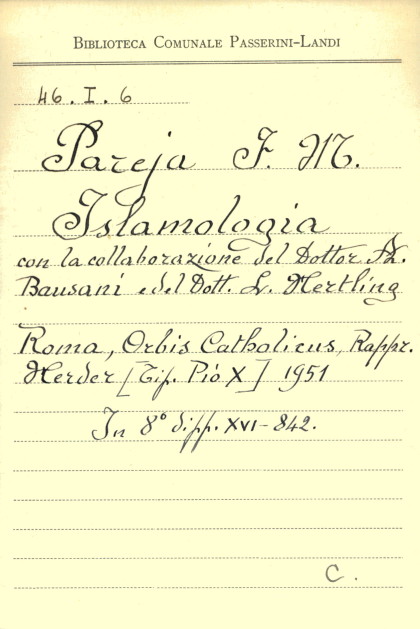 BIBLIOTECA COMUNALE PASSERINI-LANDI
46. I. 6
Pareja F. M.
Islamologia
con la collaborazione del Dottor
Bausani e del Dott. L. Hertling
Roma, Orbis Catholicus, Rappr.
Herder [Tip. Pio X] 1951
In 8° di pp. XVI-842.
C.